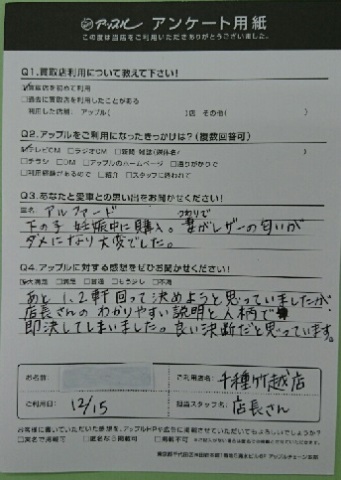 アップル アンケート用紙
この度は当店をご利用いただきありがとうございました。
Q1.買取店利用について教えて下さい!
☑買取店を初めて利用
□過去に買取店を利用したことがある
利用した店舗: アップル( )店 その他( )
Q2.アップルをご利用になったきっかけは?(複数回答可)
☑テレビCM □ラジオCM □新聞・雑誌(媒体名: )
□チラシ □DM □アップルのホームページ □通りがかりで
□利用経験があるので □紹介 □スタッフに誘われて
Q3.あなたと愛車との思い出をお聞かせください!
車名: アルファード
つわりで
下の子 妊娠中に購入。妻がレザーの匂いが
ダメになり大変でした。
Q4.アップルに対する感想をぜひお聞かせください!
☑大満足 □満足 □普通 □もう少し □不満
あと1、2軒回って決めようと思っていましたが
店長さんのわかりやすい説明と人柄で
即決してしまいました。良い決断だと思っています。
お名前:
ご利用店名: 千種竹越店
ご利用日: 12/15
担当スタッフ名: 店長さん
お客様に書いていただいた感想を、アップルHPや広告に掲載させていただいてもよろしいでしょうか?
□実名で掲載可 □匿名なら掲載可 □掲載不可